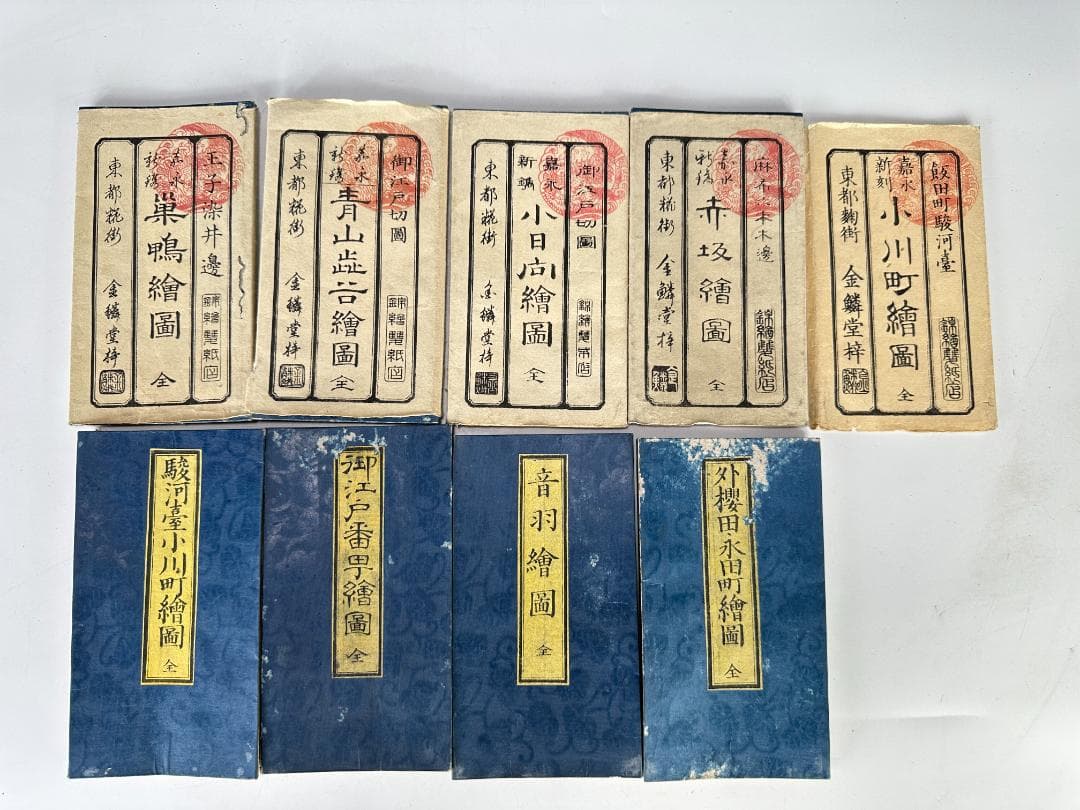 王子染井邊
嘉永新鐫
巣鴨繪圖 全
東都糀街 金鱗堂梓
御江戸切圖
嘉永新鐫
青山澁谷繪圖 全
東都糀街 金鱗堂梓
御江戸切圖
嘉永新鐫
小日向繪圖 全
東都糀街 金鱗堂梓
嘉永新鐫
赤坂繪圖 全
東都糀街 金鱗堂梓
錦繪雙紙店
飯田町駿河臺
錦繪雙紙店
嘉永新刻
小川町繪圖 全
東都麴街 金鱗堂梓
駿河臺小川町繪圖 全
御江戸番町繪圖 全
音羽繪圖 全
外櫻田永田町繪圖 全